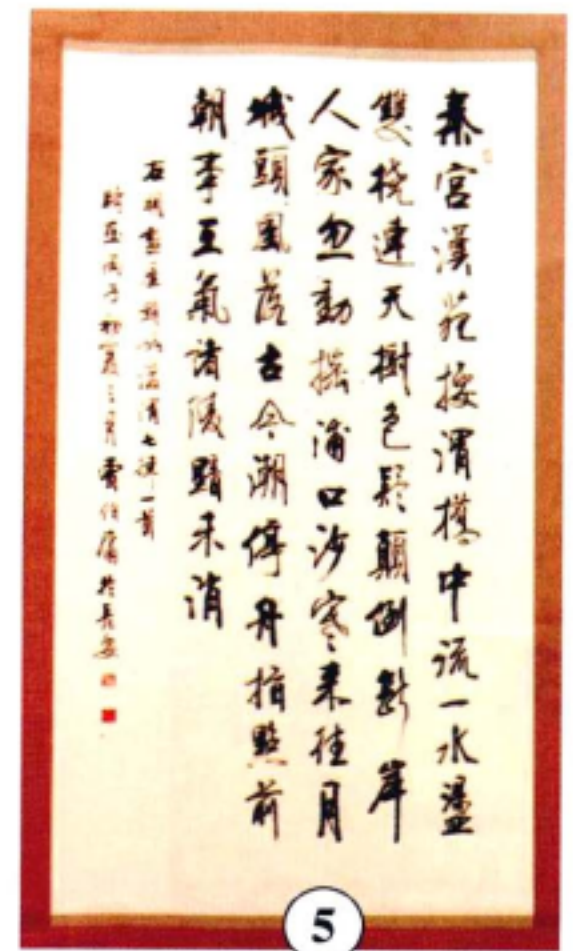 秦宮漢苑接渭橋中流一水盪
雙橈連天樹色疑顛倒斷岸
人家忽動搖浦口沙寒來往月
城頭風落古今潮停舟指點前
朝事王氣諸陵黯未消
石城 七律一首
時 戊子初夏之月 於長安
5